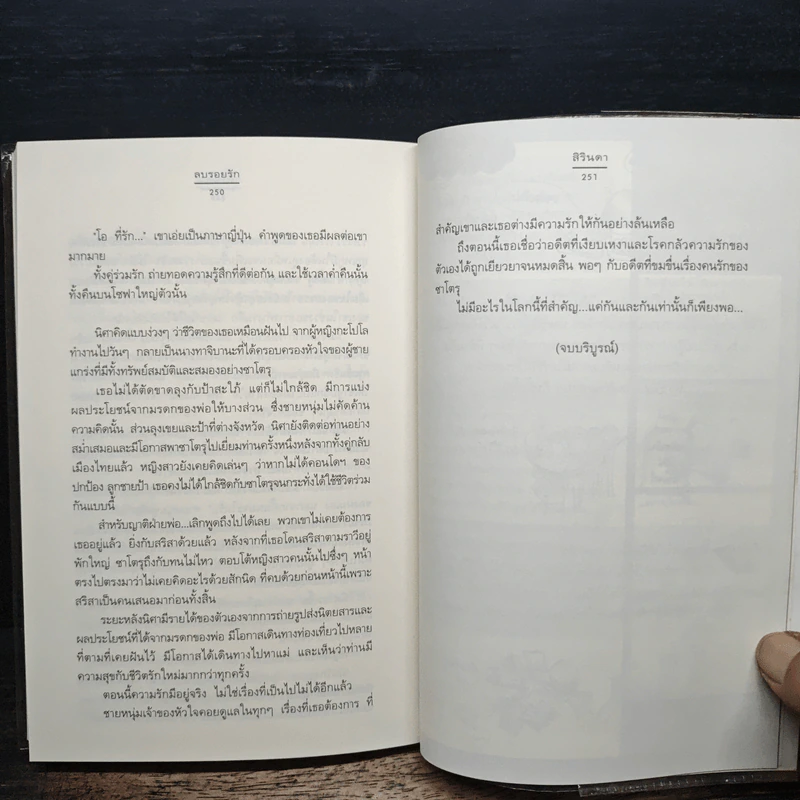 ลบรอยรัก
250
"โอ ที่รัก..." เขาเอ่ยเป็นภาษาญี่ปุ่น คำพูดของเธอมีผลต่อเขา
มากมาย
ทั้งคู่ร่วมรัก ถ่ายทอดความรู้สึกที่ดีต่อกัน และใช้เวลาค่ำคืนนั้น
ทั้งคืนบนโซฟาใหญ่ตัวนั้น
นิศาคิดแบบง่วงๆ ว่าชีวิตของเธอเหมือนฝันไป จากผู้หญิงกะโปโล
ทำงานไปวันๆ กลายเป็นนางทาจิบานะที่ได้ครอบครองหัวใจของผู้ชาย
แกร่งที่มีทั้งทรัพย์สมบัติและสมองอย่างซาโตรุ
เธอไม่ได้ตัดขาดลุงกับป้าสะใภ้ แต่ก็ไม่ใกล้ชิด มีการแบ่ง
ผลประโยชน์จากมรดกของพ่อให้บางส่วน ซึ่งชายหนุ่มไม่คัดค้าน
ความคิดนั้น ส่วนลุงเขยและป้าที่ต่างจังหวัด นิศายังติดต่อท่านอย่าง
สม่ำเสมอและมีโอกาสพาซาโตรุไปเยี่ยมท่านครั้งหนึ่งหลังจากทั้งคู่กลับ
เมืองไทยแล้ว หญิงสาวยังเคยคิดเล่นๆ ว่าหากไม่ได้คอนโดฯ ของ
ปกป้อง ลูกชายป้า เธอคงไม่ได้ใกล้ชิดกับซาโตรุจนกระทั่งได้ใช้ชีวิตร่วม
กันแบบนี้
สำหรับญาติฝ่ายพ่อ...เลิกพูดถึงไปได้เลย พวกเขาไม่เคยต้องการ
เธออยู่แล้ว ยิ่งกับสริสาด้วยแล้ว หลังจากที่เธอโดนสริสาตามราวีอยู่
พักใหญ่ ซาโตรุถึงกับทนไม่ไหว ตอบโต้หญิงสาวคนนั้นไปซึ่งๆ หน้า
ตรงไปตรงมาว่าไม่เคยคิดอะไรด้วยสักนิด ที่คบด้วยก่อนหน้านี้เพราะ
สริสาเป็นคนเสนอมาก่อนทั้งสิ้น
ระยะหลังนิศามีรายได้ของตัวเองจากการถ่ายรูปส่งนิตยสารและ
ผลประโยชน์ที่ได้จากมรดกของพ่อ มีโอกาสเดินทางท่องเที่ยวไปหลาย
ที่ตามที่เคยฝันไว้ มีโอกาสได้เดินทางไปหาแม่ และเห็นว่าท่านมี
ความสุขกับชีวิตรักใหม่มากกว่าทุกครั้ง
ตอนนี้ความรักมีอยู่จริง ไม่ใช่เรื่องที่เป็นไปไม่ได้อีกแล้ว
ชายหนุ่มเจ้าของหัวใจคอยดูแลในทุกๆ เรื่องที่เธอต้องการ ที่
สิรินดา
251
สำคัญเขาและเธอต่างมีความรักให้กันอย่างล้นเหลือ
ถึงตอนนี้เธอเชื่อว่าอดีตที่เงียบเหงาและโรคกลัวความรักของ
ตัวเองได้ถูกเยียวยาจนหมดสิ้น พอๆ กับอดีตที่ขมขื่นเรื่องคนรักของ
ซาโตรุ
ไม่มีอะไรในโลกนี้ที่สำคัญ...แค่กันและกันเท่านั้นก็เพียงพอ...
(จบบริบูรณ์)